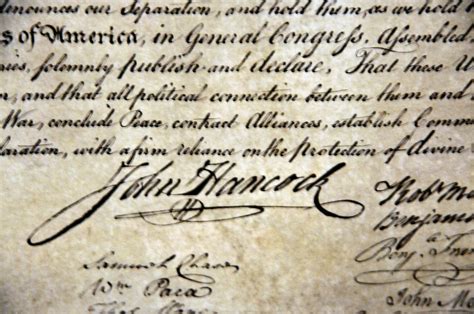 nounces our Separation, and hold them, as we hold
s of America, in General Congress, Assembled
ries, solemnly publish and declare, That these U
r, and that all political connection between them and
War, conclude Peace, contract Alliances, establish Comm
laration, with a firm reliance on the Protection of divine
John Hancock
Robt M
Benjami
Benj. Fran
John Mo
Samuel Chase
Wm Paca
Thos Stone